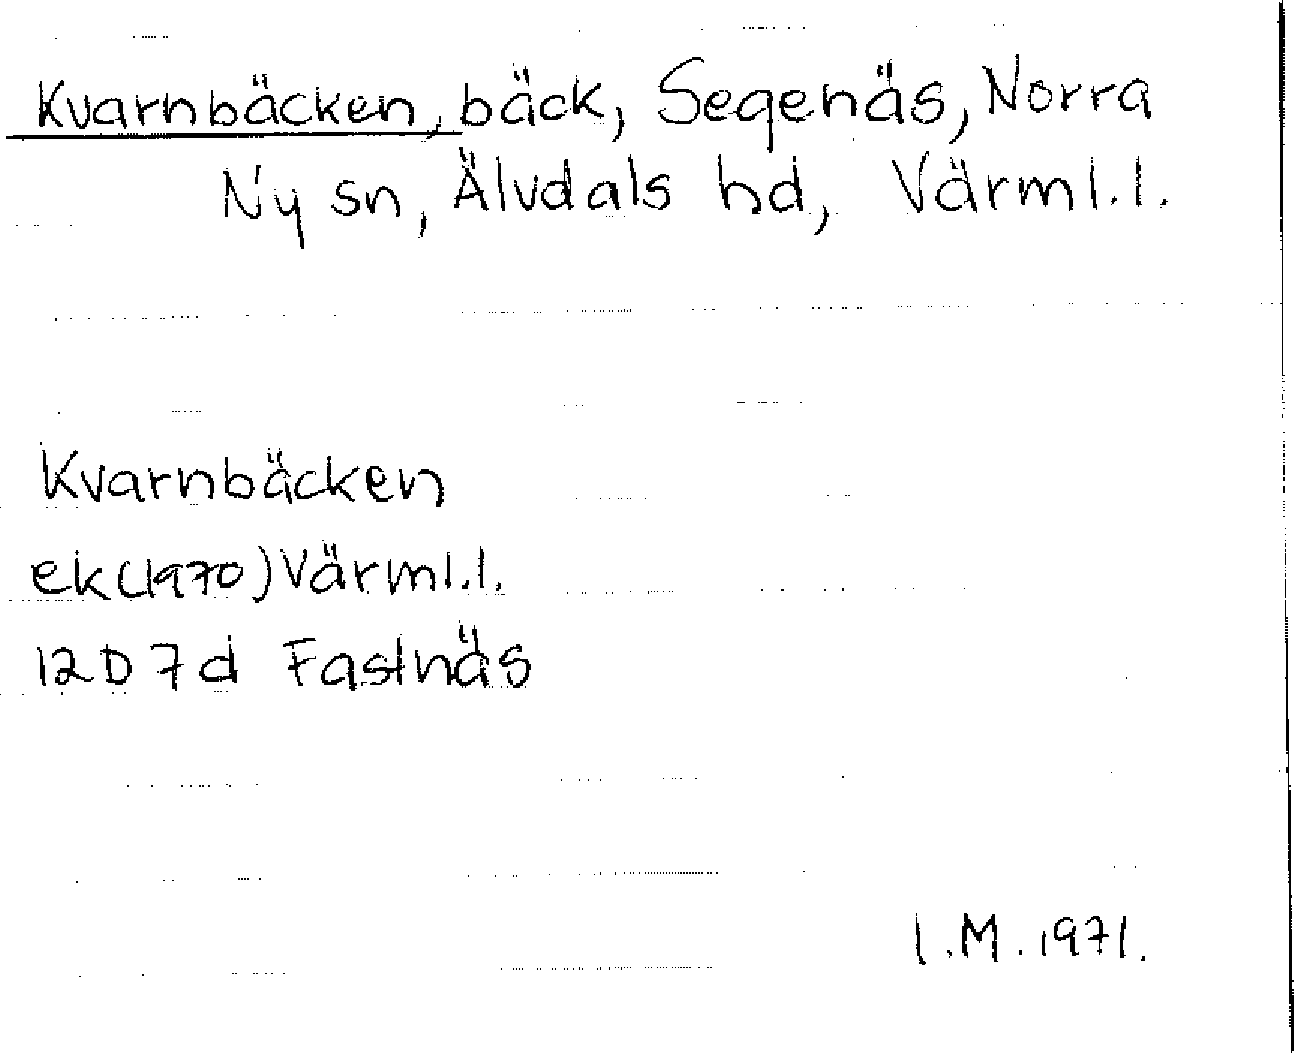 Kvarnbäcken, bäck, Segenäs, Norra
Ny sn, Älvdals hd, Värml.l.
Kvarnbäcken
ek(1970)Värml.l.
12D7d Fastnäs
I.M.1971.